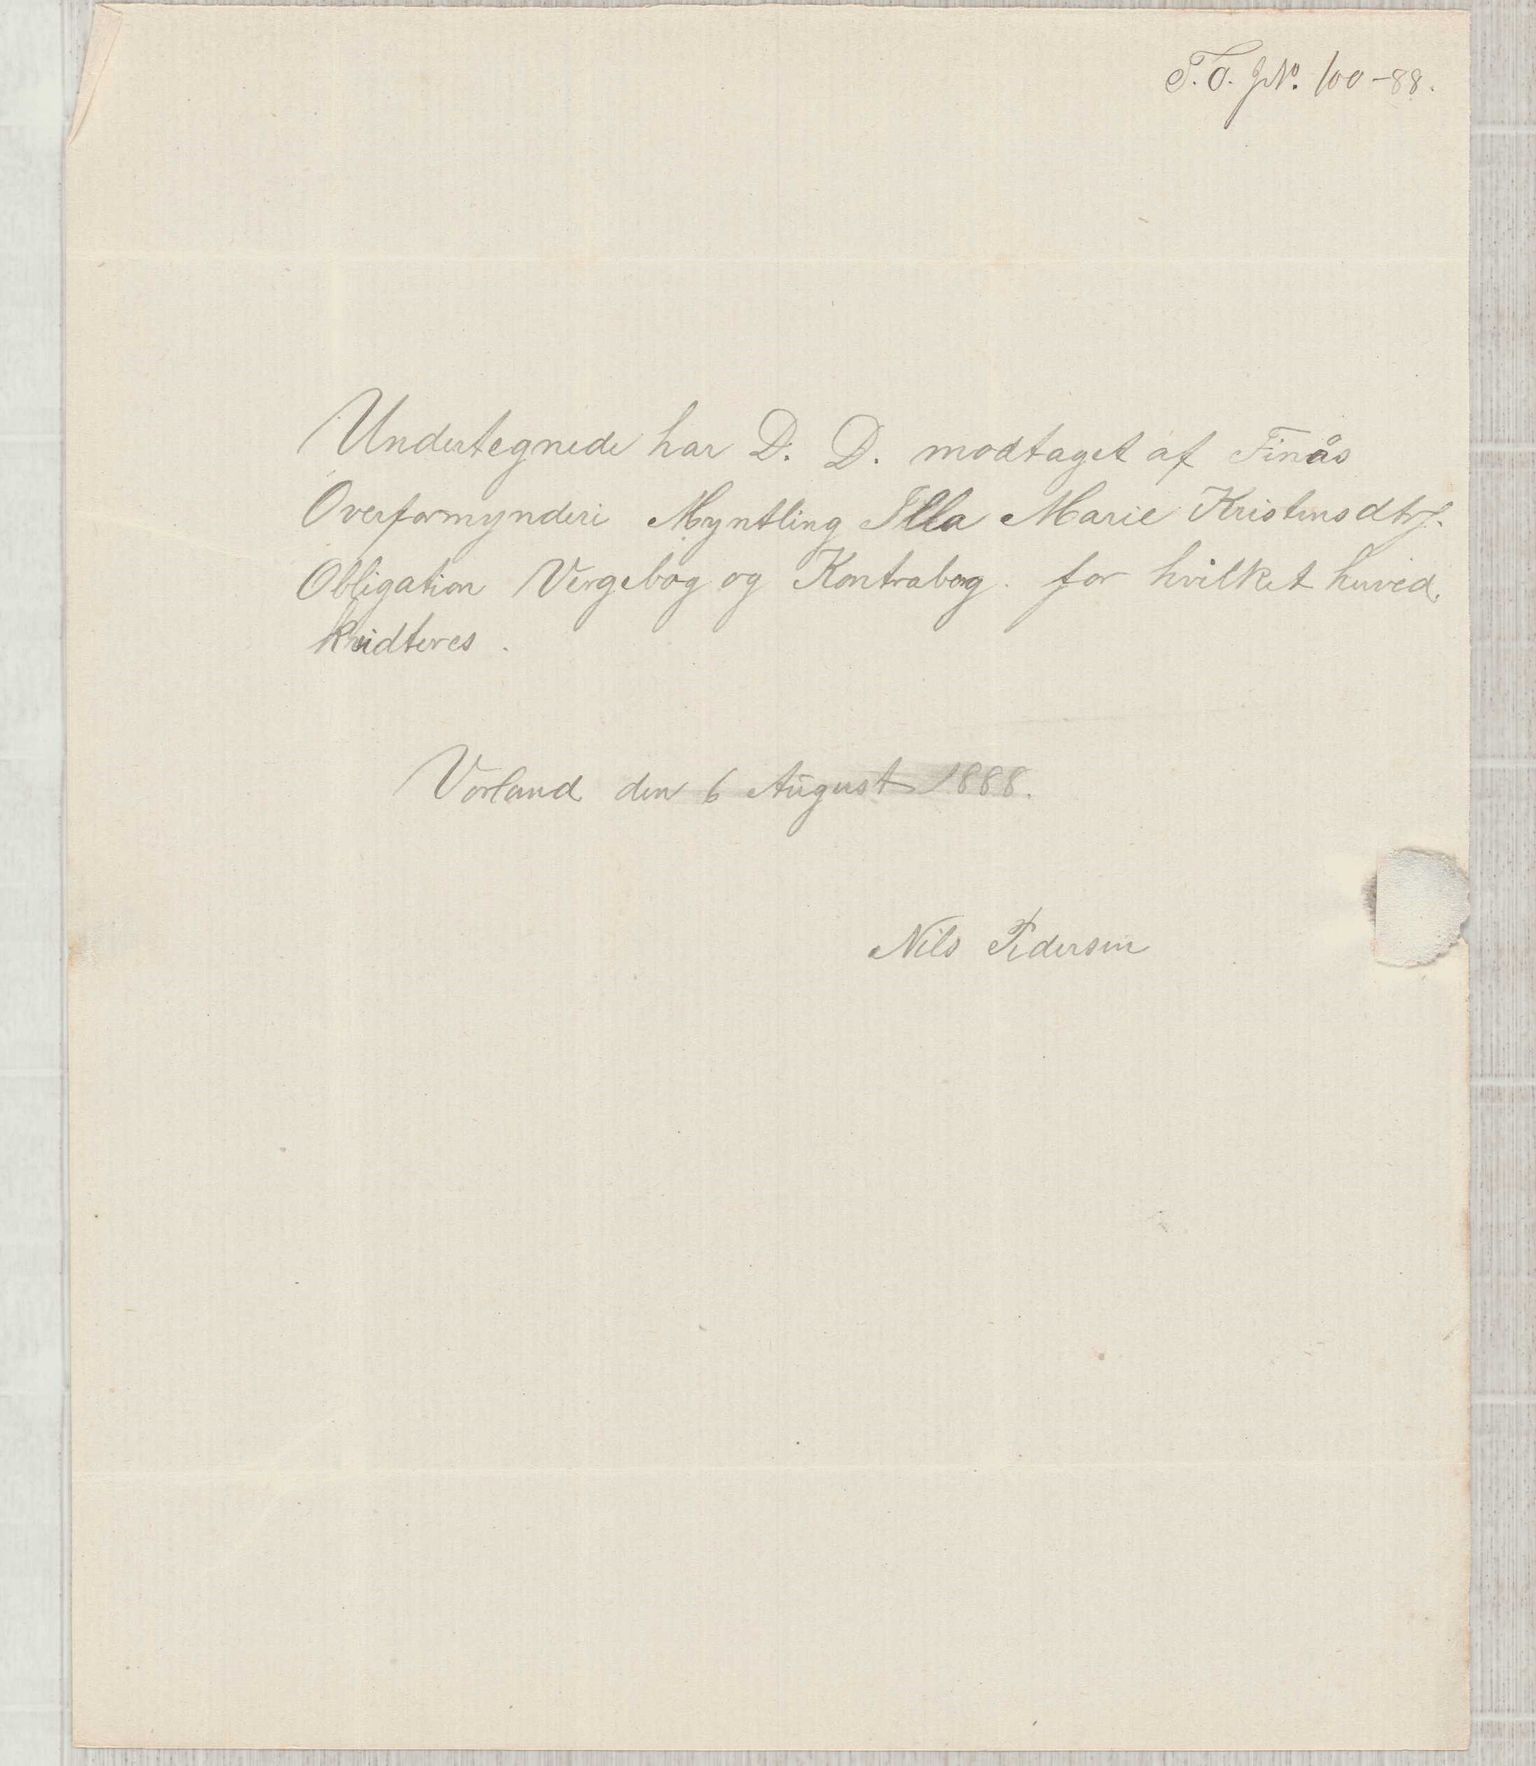 F. O. JNo. 100-88.
Undertegnede har D. D. modtaget af Finås
Overformynderi Myntling Illa Marie Kristensdtr.
Obligation Vergebog og Kontrabog. for hvilket herved,
kvidteres.
Vorland den 6 August 1888.
Nils Pedersen